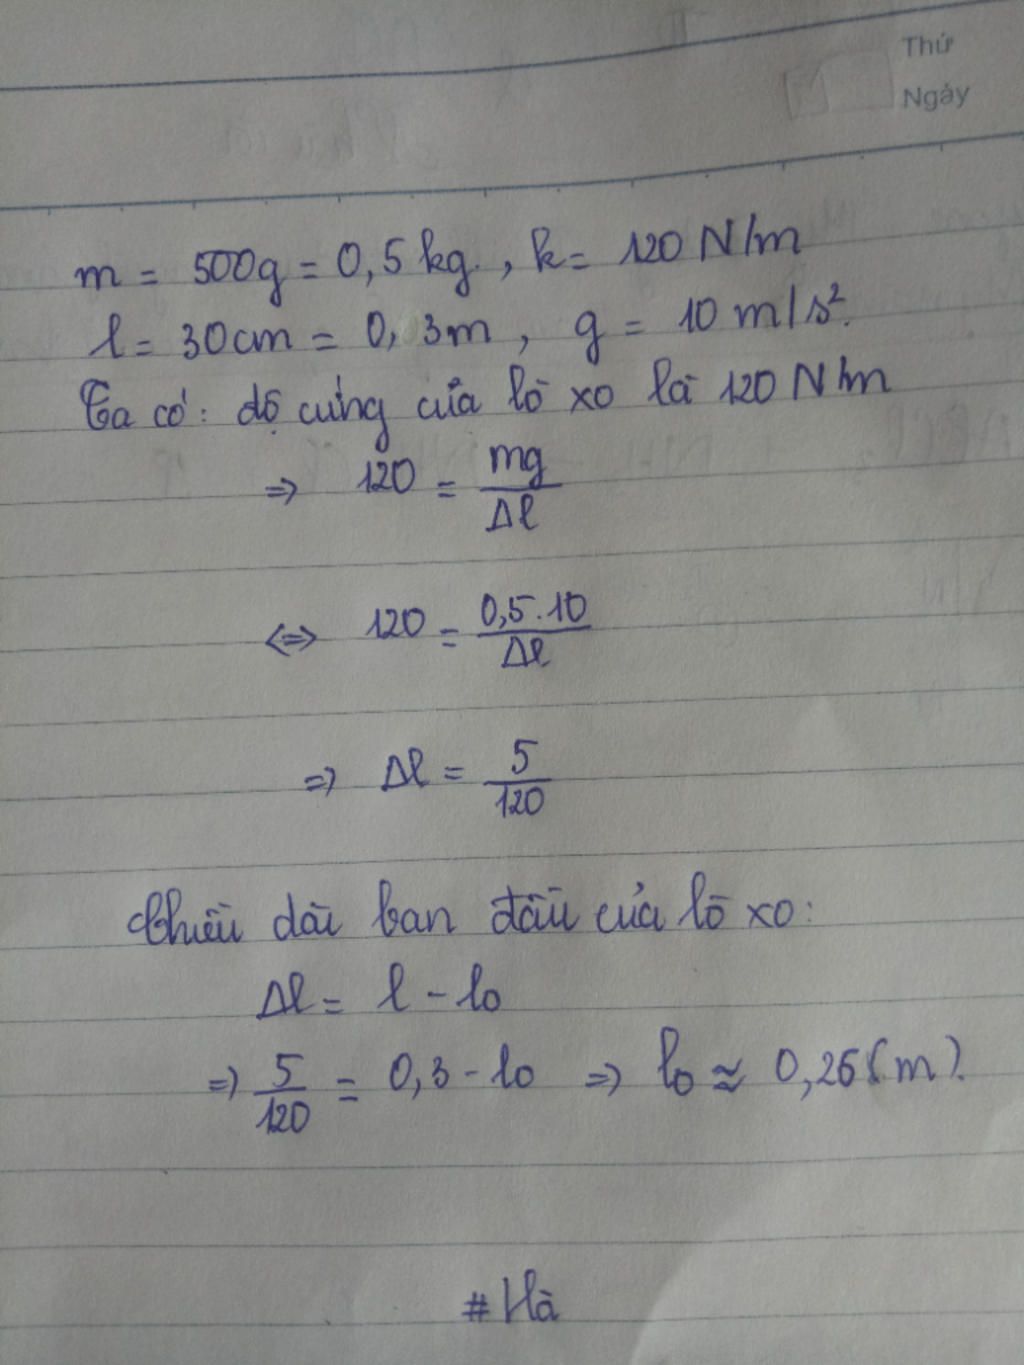 Thứ
Ngày
m = 500g = 0,5 kg , k = 120 N/m
l = 30cm = 0,3m , g = 10 m/s².
Ta có: độ cứng của lò xo là 120 N/m
=> 120 = mg/Δl
<=> 120 = 0,5.10/Δl
=> Δl = 5/120
Chiều dài ban đầu của lò xo:
Δl = l - lo
=> 5/120 = 0,3 - lo => lo ≈ 0,26(m).
#Hà